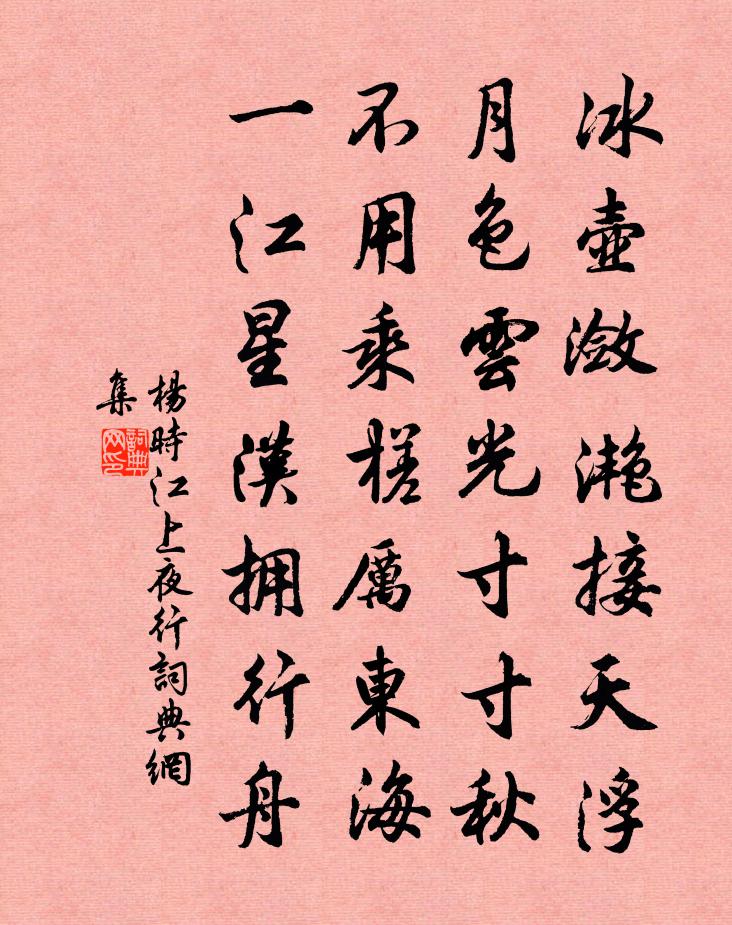 冰壺瀲灔接天浮
月色雲光寸寸秋
不用乘槎厲東海
一江星漢拥行舟
楊時江上夜行詞典網
集
詞典
网印